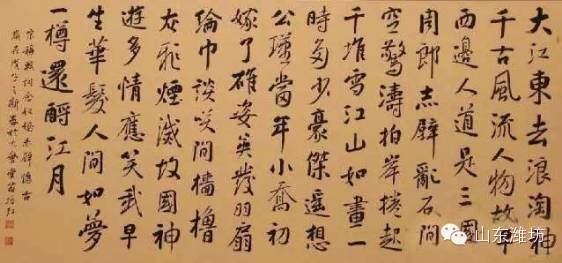 大江東去浪淘盡
千古風流人物故壘
西邊人道是三國
周郎赤壁亂石穿
空驚濤拍岸捲起
千堆雪江山如畫一
時多少豪傑遙想
公瑾當年小喬初
嫁了雄姿英發羽扇
綸巾談笑間檣櫓
灰飛煙滅故國神
遊多情應笑我早
生華髮人間如夢
一樽還酹江月
宋蘇軾詞念奴嬌赤壁懷古
歲在戊子之
山东潍坊